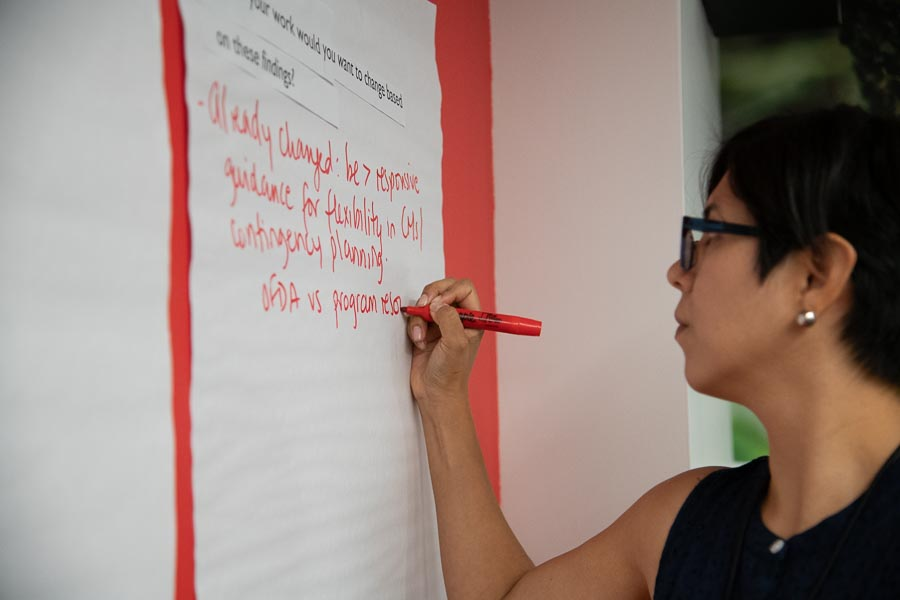 your work would you want to change based
on these findings?
- Already changed: be > responsive
guidance for flexibility in CMs/
contingency planning.
OFDA vs program reso